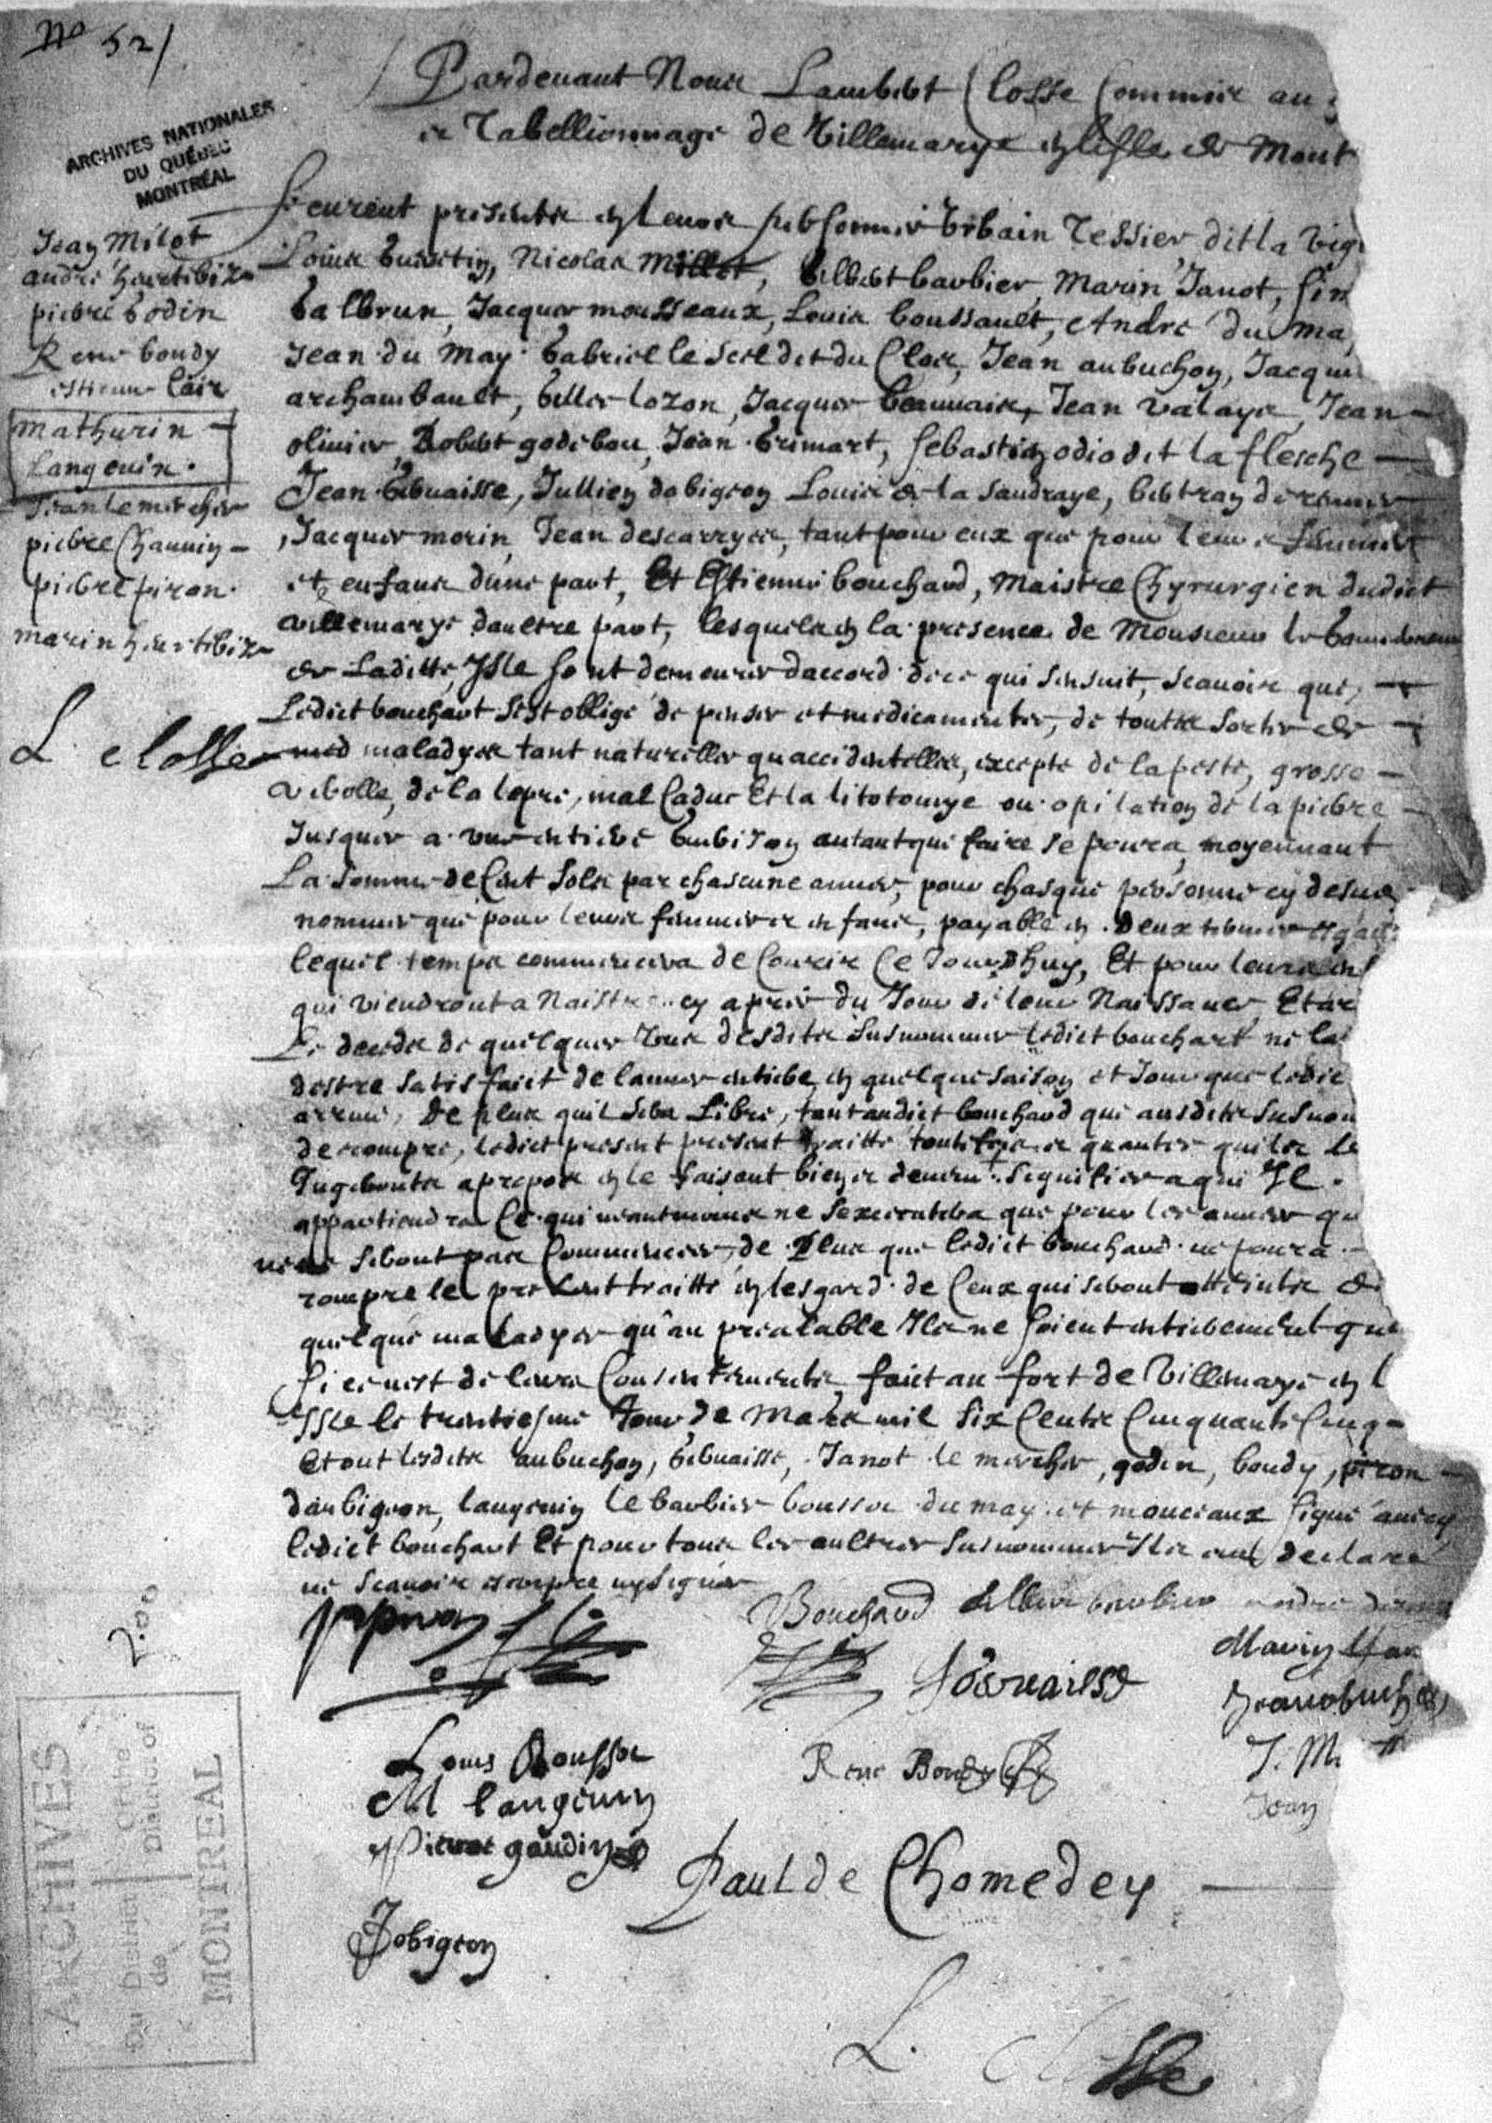 No 52/
ARCHIVES NATIONALES
DU QUÉBEC
MONTRÉAL
Pardevant Nous Lambert Closse Commis au
et Tabellionnage de Villemarye en lisle de Mont
Jean Milot
andré heurtibize
pierre Godin
René bondy
estienne lair
mathurin
Langevin
Jean lemercher
pierre Chauvin
pierre piron
marin heurtibize
L. closse
furent presents en leurs personnes Urbain Tessier dit la vig
Louis Guertin, Nicolas Millet, Gilbert barbier, Marin Janot, Sim
Galbrun, Jacques mousseaux, Louis boussault, André du ma
Jean du may Gabriel le Seel dit du Clos, Jean aubuchon, Jacques
archambault, Gilles lozon, Jacques beauvais, Jean valays, Jean
olivier, Robert godebou, Jean Grimart, Sebastien odio dit la flesche
Jean Gervaisse, Jullien dobigeon Louis de la Saudraye, bertran de rennes
Jacques morin, Jean descarryes, tant pour eux que pour leurs femmes
et enfans dune part, Et Estienne bouchard, Maistre Chyrurgien dudict
villemarye daultre part, lesquels en la presence de Monsieur le Gouverneur
de Laditte Isle sont demeures daccord de ce qui sensuit, scavoir que
Ledict bouchart sest obligé de penser et medicamenter, de touttes sortes de
maladyes tant naturelles quaccidentelles, excepte de la peste, grosse
verolle, de la lepre, mal Caduc Et la litotomye ou opilation de la pierre
Jusques a une entiere Guerison autant que faire se poura, moyennant
La somme de Cent Sols par chascune annee, pour chasque personne cy desus
nommes que pour leurs femmes et enfans, payable en deux termes egaux
lequel temps commencera de Courir Ce Jourdhuy, Et pour leurs enf
qui viendront a Naistre cy apres du Jour de leur Naissance, Et ar
Le deceds de quelques Uns desdits susnommes ledict bouchart ne la
destre satisfaict de lannee entiere en quelque saison et Jour que ledic
arrive, De plus quil sera Libre, tant audict bouchard que ausdits susnom
de rompre, ledict present present traitte touttefois et quantes quils le
Jugeront a propos en le faisant bien et deument signifier a qui Il
appartiendra Ce qui neantmoins ne sexecutera que pour les annees qu
ne seront pas Commencees, de Plus que ledict bouchard ne poura
rompre le present traitté en lesgard de Ceux qui seront atteints de
quelque maladyes qu'au prealable Ils ne soient entierement gue
Si ce nest de leurs Consentements, faict au fort de Villemarye en l
Isle le trentiesme Jour de Mars mil Six Cents Cinquante Cinq
Et ont lesdits aubuchon, Gervaisse, Janot le mercher, godin, bondy, piron
daubigeon, langevin le barbier boussot du may et mouceaux signé avecq
ledict bouchart Et pour tous les aultres susnommes Ils ont declaré
ne scavoir escripre ny signer
ppiron
Bouchard
Gilbert barbier
andre dumay
Marin Jan
Gervaisse
Jean obuchon
Louis Boussot
René Bondy
J. M
M langevin
Jean
Pierre gaudin
Paul de Chomedey
Dobigeon
L. Closse
200
ARCHIVES
Du District | Of the
de | District of
MONTREAL